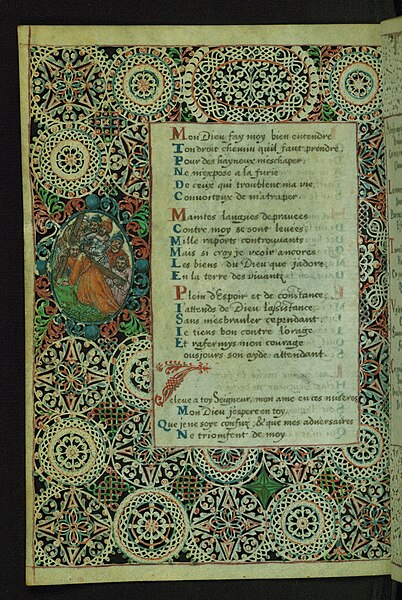 Mon Dieu fay moy bien entendre
Ton droit chemin quil faut prendre,
Pour des hayneux meschaper,
Ne mexpose a la furie
De ceux qui troublent ma vie,
Convoiteux de matraper.
Maintes langues depravees
Contre moy se sont levees,
Mille raports controuvants
Mais si croy je veoir ancores
Les biens du Dieu que jadore
En la terre des vivants
Plein d'Espoir et de constance,
Iattends de Dieu lasistance,
Sans mesbranler cependant
Ie tiens bon contre lorage
Et rafermys mon courage
Tousjours son ayde attendant.
Ieleve a toy Seigneur, mon ame en ces miseres
Mon Dieu jespere en toy,
Que je ne soye confuz, & que mes adversaires
Ne triomfent de moy